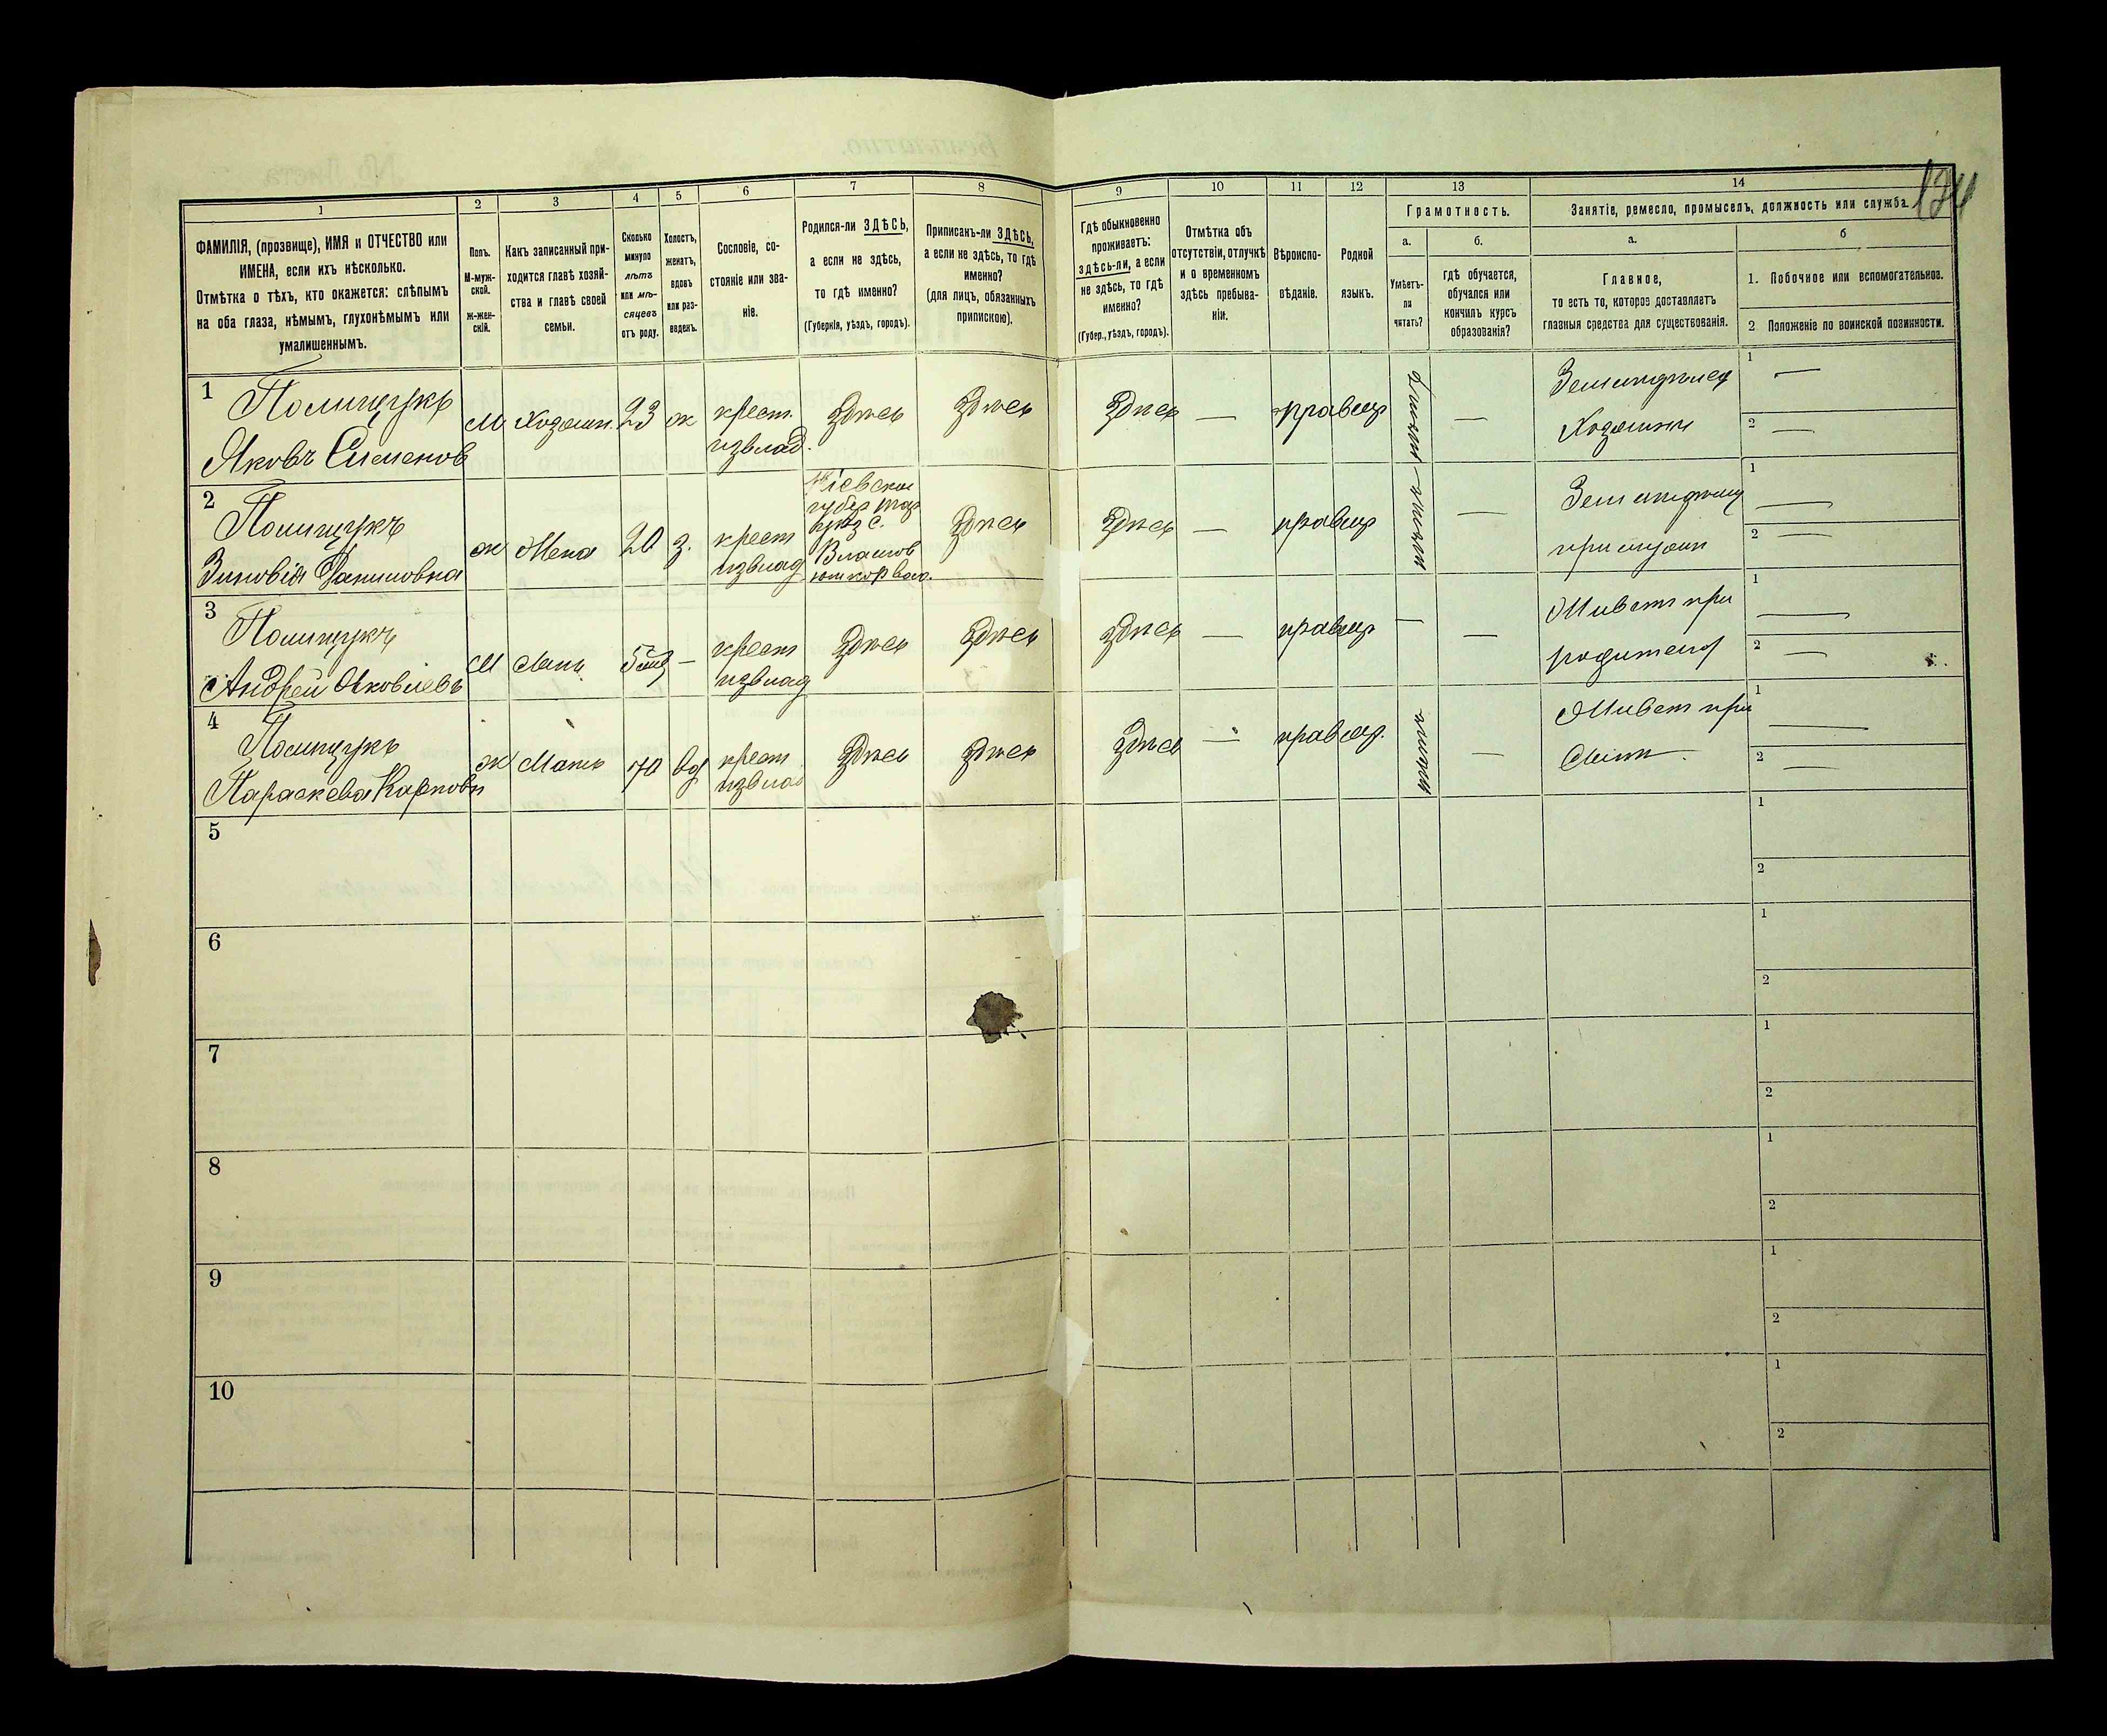 124
1
2
3
4
5
6
7
8
9
10
11
12
13
14
ФАМИЛІЯ, (прозвище), ИМЯ и ОТЧЕСТВО или
ИМЕНА, если ихъ нѣсколько.
Отмѣтка о тѣхъ, кто окажется: слѣпымъ
на оба глаза, нѣмымъ, глухонѣмымъ или
умалишеннымъ.
Полъ.
М-муж-
ской.
Ж-жен-
скій.
Какъ записанный при-
ходится главѣ хозяй-
ства и главѣ своей
семьи.
Сколько
минуло
лѣтъ
или мѣ-
сяцевъ
отъ роду.
Холостъ,
женатъ,
вдовъ
или раз-
веденъ.
Сословіе, со-
стояніе или зва-
ніе.
Родился-ли ЗДѢСЬ,
а если не здѣсь,
то гдѣ именно?
(Губернія, уѣздъ, городъ).
Приписанъ-ли ЗДѢСЬ,
а если не здѣсь, то гдѣ
именно?
(для лицъ, обязанныхъ
припискою).
Гдѣ обыкновенно
проживаетъ:
здѣсь-ли, а если
не здѣсь, то гдѣ
именно?
(Губер., уѣздъ, городъ).
Отмѣтка объ
отсутствіи, отлучкѣ
и о временномъ
здѣсь пребыва-
ніи.
Вѣроиспо-
вѣданіе.
Родной
языкъ.
Грамотность.
а.
Умѣетъ-
ли
читать?
б.
гдѣ обучается,
обучался или
кончилъ курсъ
образованія?
Занятіе, ремесло, промыселъ, должность или служба.
а.
Главное,
то есть то, которое доставляетъ
главныя средства для существованія.
б
1. Побочное или вспомогательное.
2 Положеніе по воинской повинности.
1
Полищукъ
Яковъ Сименов
М
Хозяин.
23
ж
крест.
извлад.
Здѣсь
Здѣсь
Здѣсь
—
правосл
—
Земледѣлец
Хозяинъ
1 —
2 —
2
Полищукъ
Зиновія Даниловна
ж
Жена
20
з.
крест
извлад
Кіевской
губер
с.
Здѣсь
Здѣсь
—
правосл
—
1 —
2 —
3
Полищукъ
Андрей Яковлевъ
М
Сынъ
—
крест
извлад
Здѣсь
Здѣсь
Здѣсь
—
правосл
—
—
Живет при
родител
1 —
2 —
4
Полищукъ
Параскева Карповн
ж
Мать
70
вд
крест
извлад
Здѣсь
Здѣсь
Здѣсь
—
правосл.
—
Живет при
Сынѣ
1 —
2 —
5
1
2
6
1
2
7
1
2
8
1
2
9
1
2
10
1
2